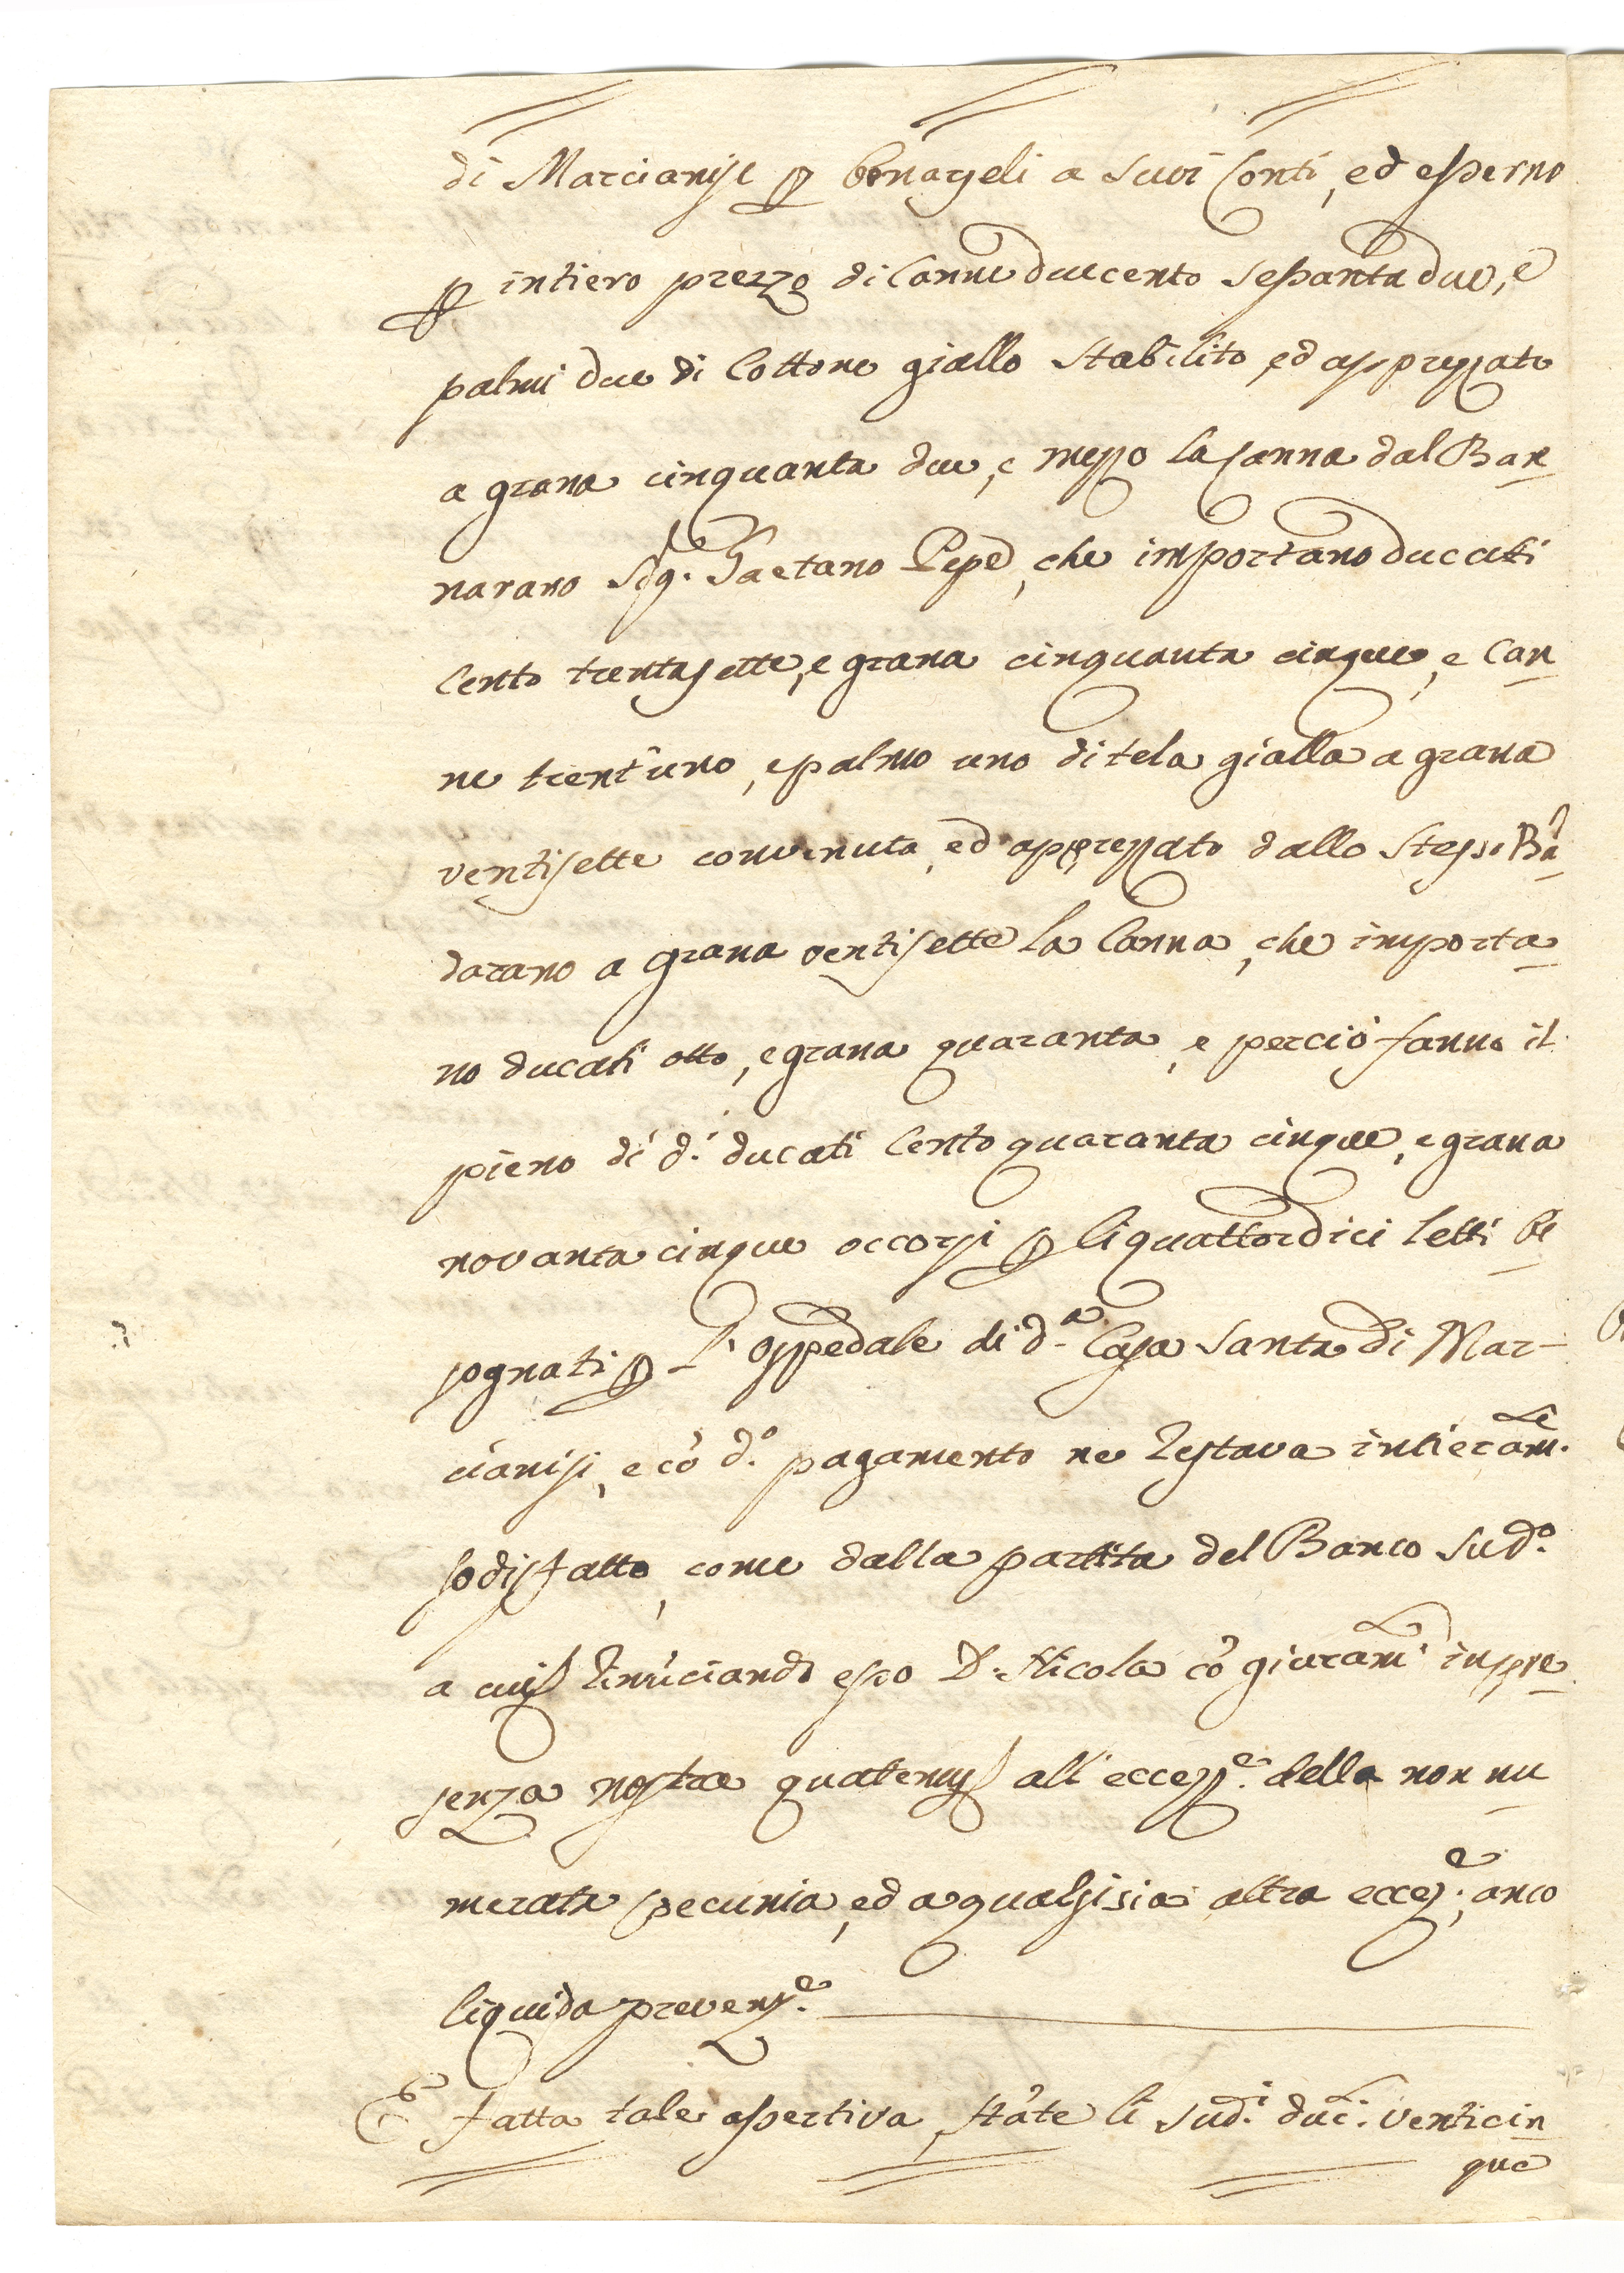 di Marcianise ꝑ bonargeli a suoi Conti, ed esserno
ꝑ intiero prezzo di Canne duecento sessanta due, e
palmi due di Cottone giallo stabilito, ed apprezzato
a grana cinquanta due, e mezzo la canna dal Ban
narano Sig.r Gaetano Pepe, che importano ducati
Cento trentasette, e grana cinquanta cinque, e Can
ne trent'uno, e palmo uno di tela gialla a grana
ventisette convenuta, ed apprezzato dallo stesso Bã
darano a grana ventisette la Canna, che importa
no ducati otto, e grana quaranta, e perciò fanno il
pieno di d.i ducati Cento quaranta cinque, e grana
novanta cinque occorsi ꝑ li quattordici letti bi
sognati ꝑ l'ospedale di d.a Casa Santa di Mar-
cianisi, e cõ d.o pagamento ne restava intieram.te
sodisfatto, come dalla partita del Banco sud.o
a cui rinũciando esso D. Nicola cõ giuram.to in pre
senza nostra quatenus all'eccez.e della non nu
merata pecunia, ed a qualsisia altra eccez.e, anco
liquida prevenz.e
E fatta tale assertiva, stãte li sud.i duc.ti venticin
que